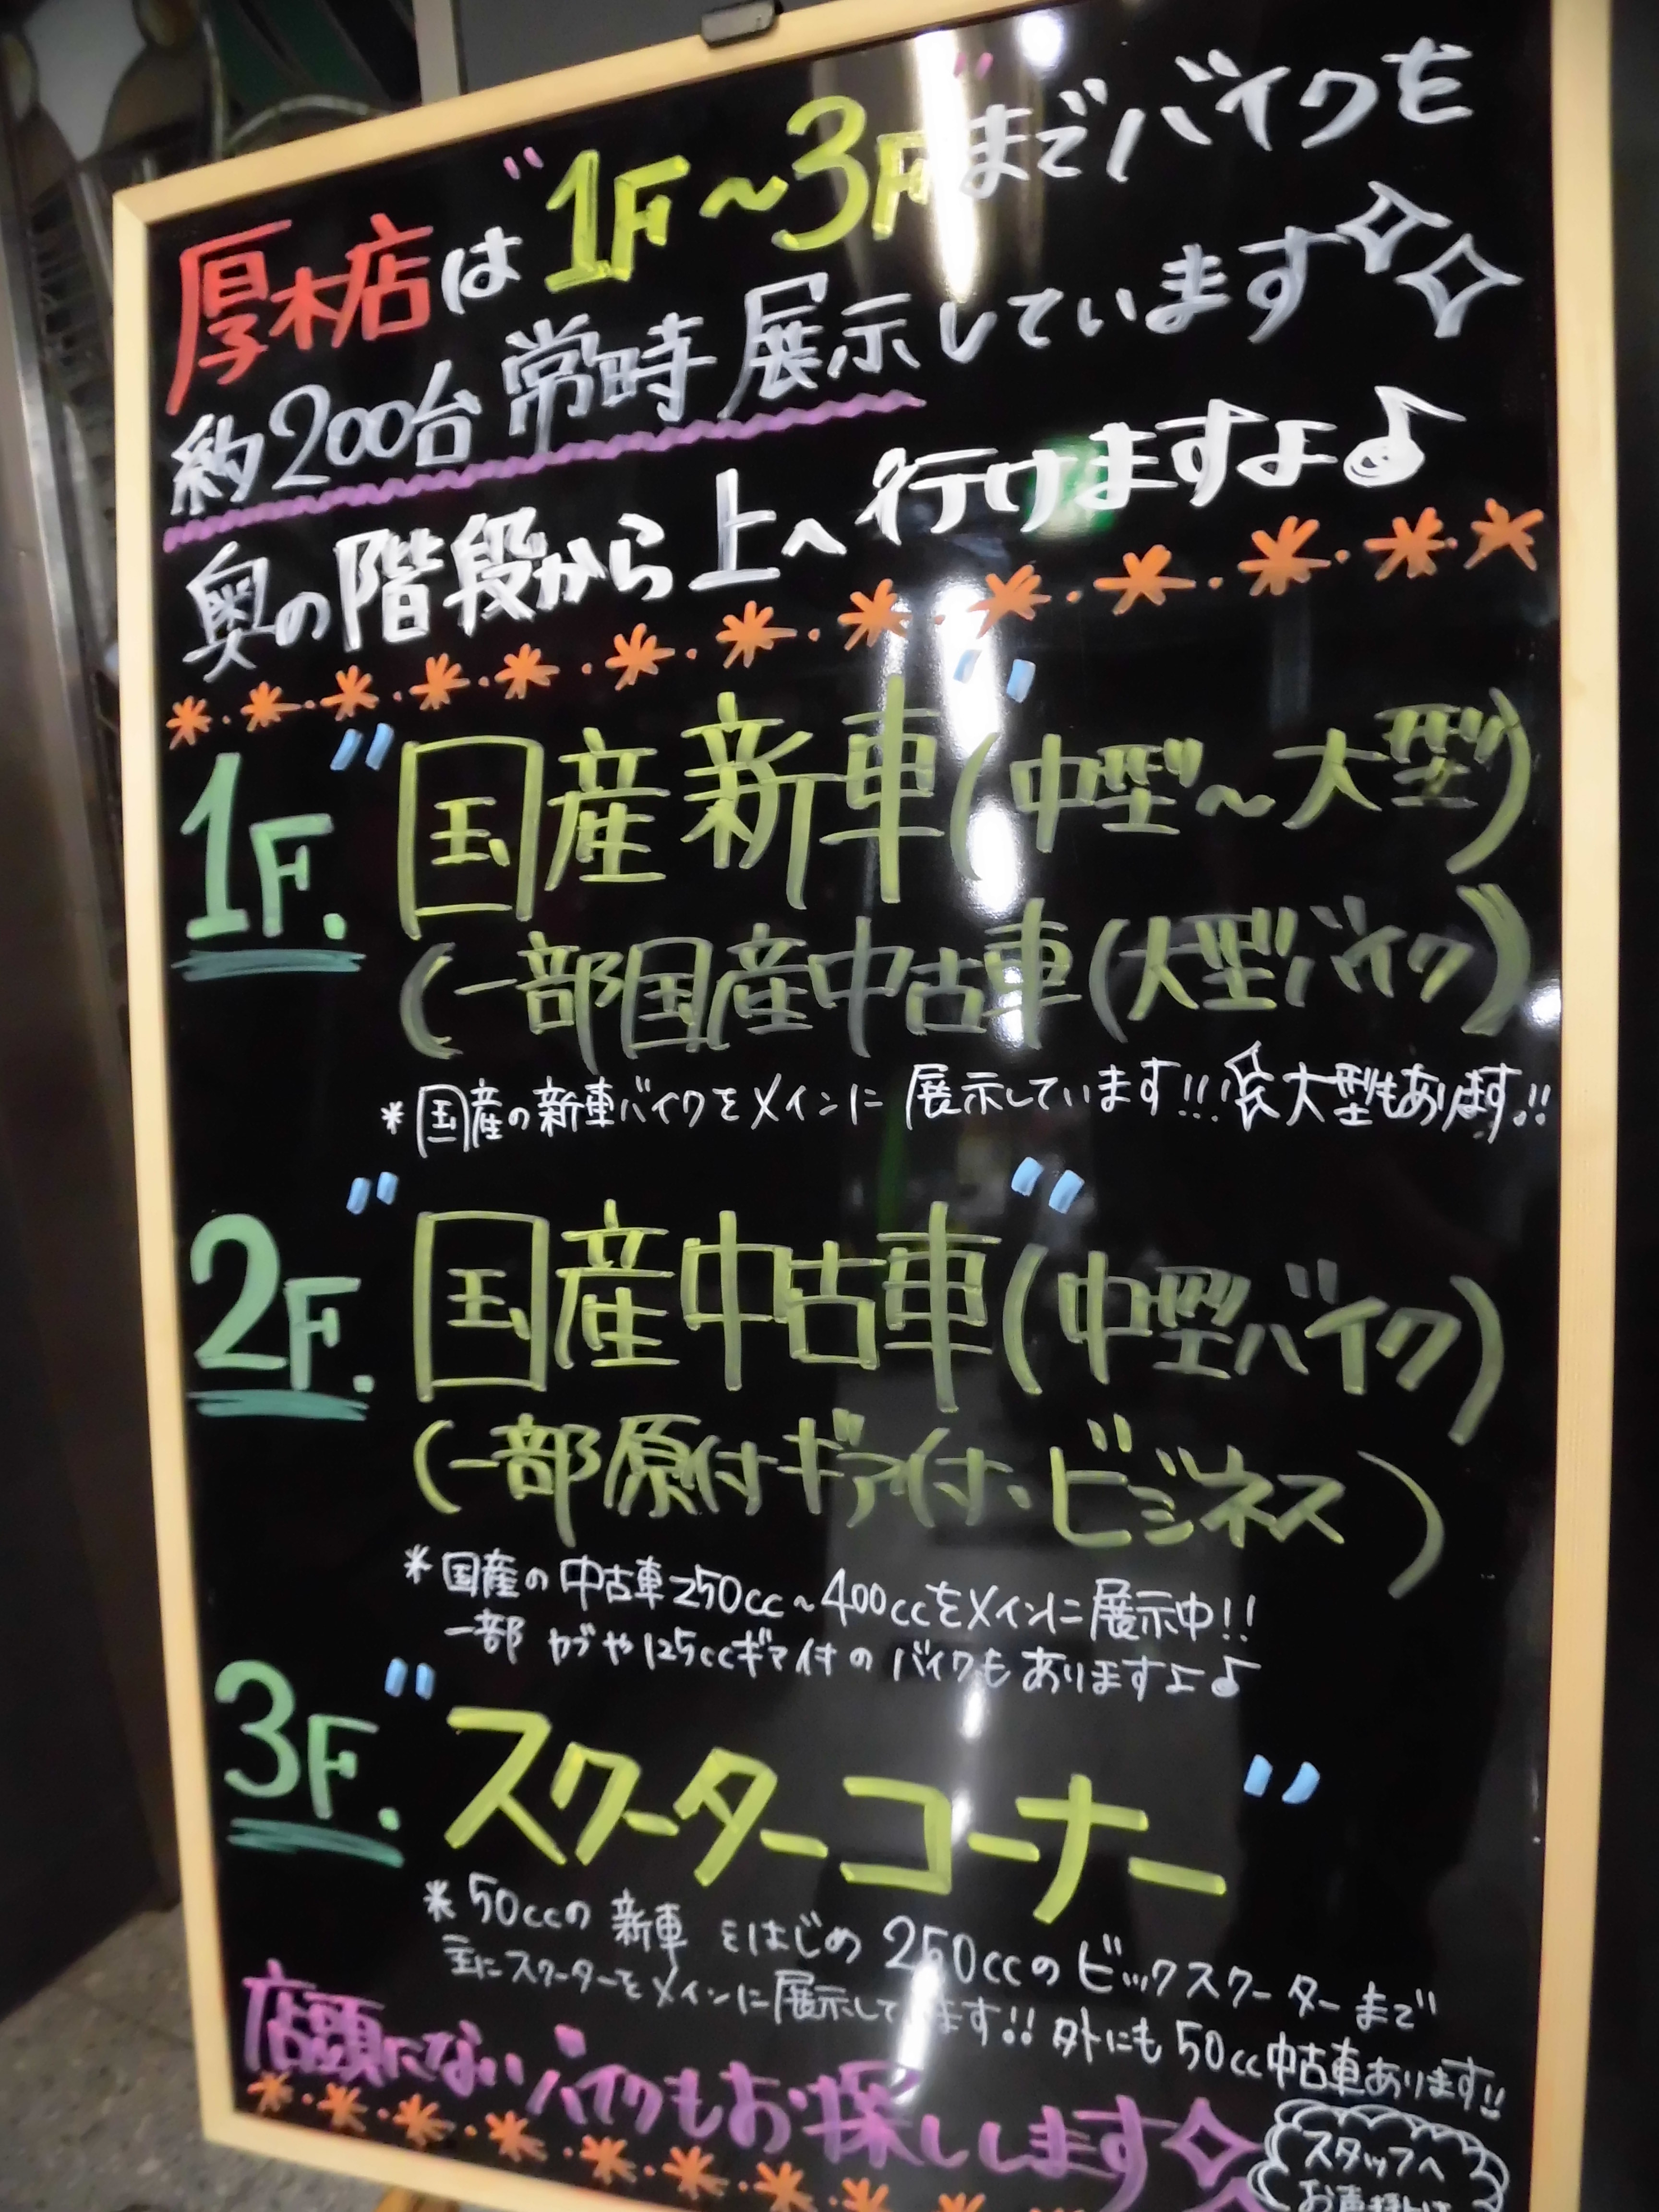 厚木店は"1F～3F"までバイクを
約200台常時展示しています
奥の階段から上へ行けますよ♪
1F. "国産新車"(中型～大型)
(一部国産中古車(大型バイク))
*国産の新車バイクをメインに展示しています!!! 大型もあります!!
2F. "国産中古車"(中型バイク)
(一部原付ギア付・ビジネス)
*国産の中古車250cc～400ccをメインに展示中!!
一部カブや125ccギア付のバイクもありますよ♪
3F. "スクーターコーナー"
*50ccの新車をはじめ250ccのビックスクーターまで
主にスクーターをメインに展示しています!! 外にも50cc中古車あります!!
店頭にないバイクもお探しします
スタッフへ